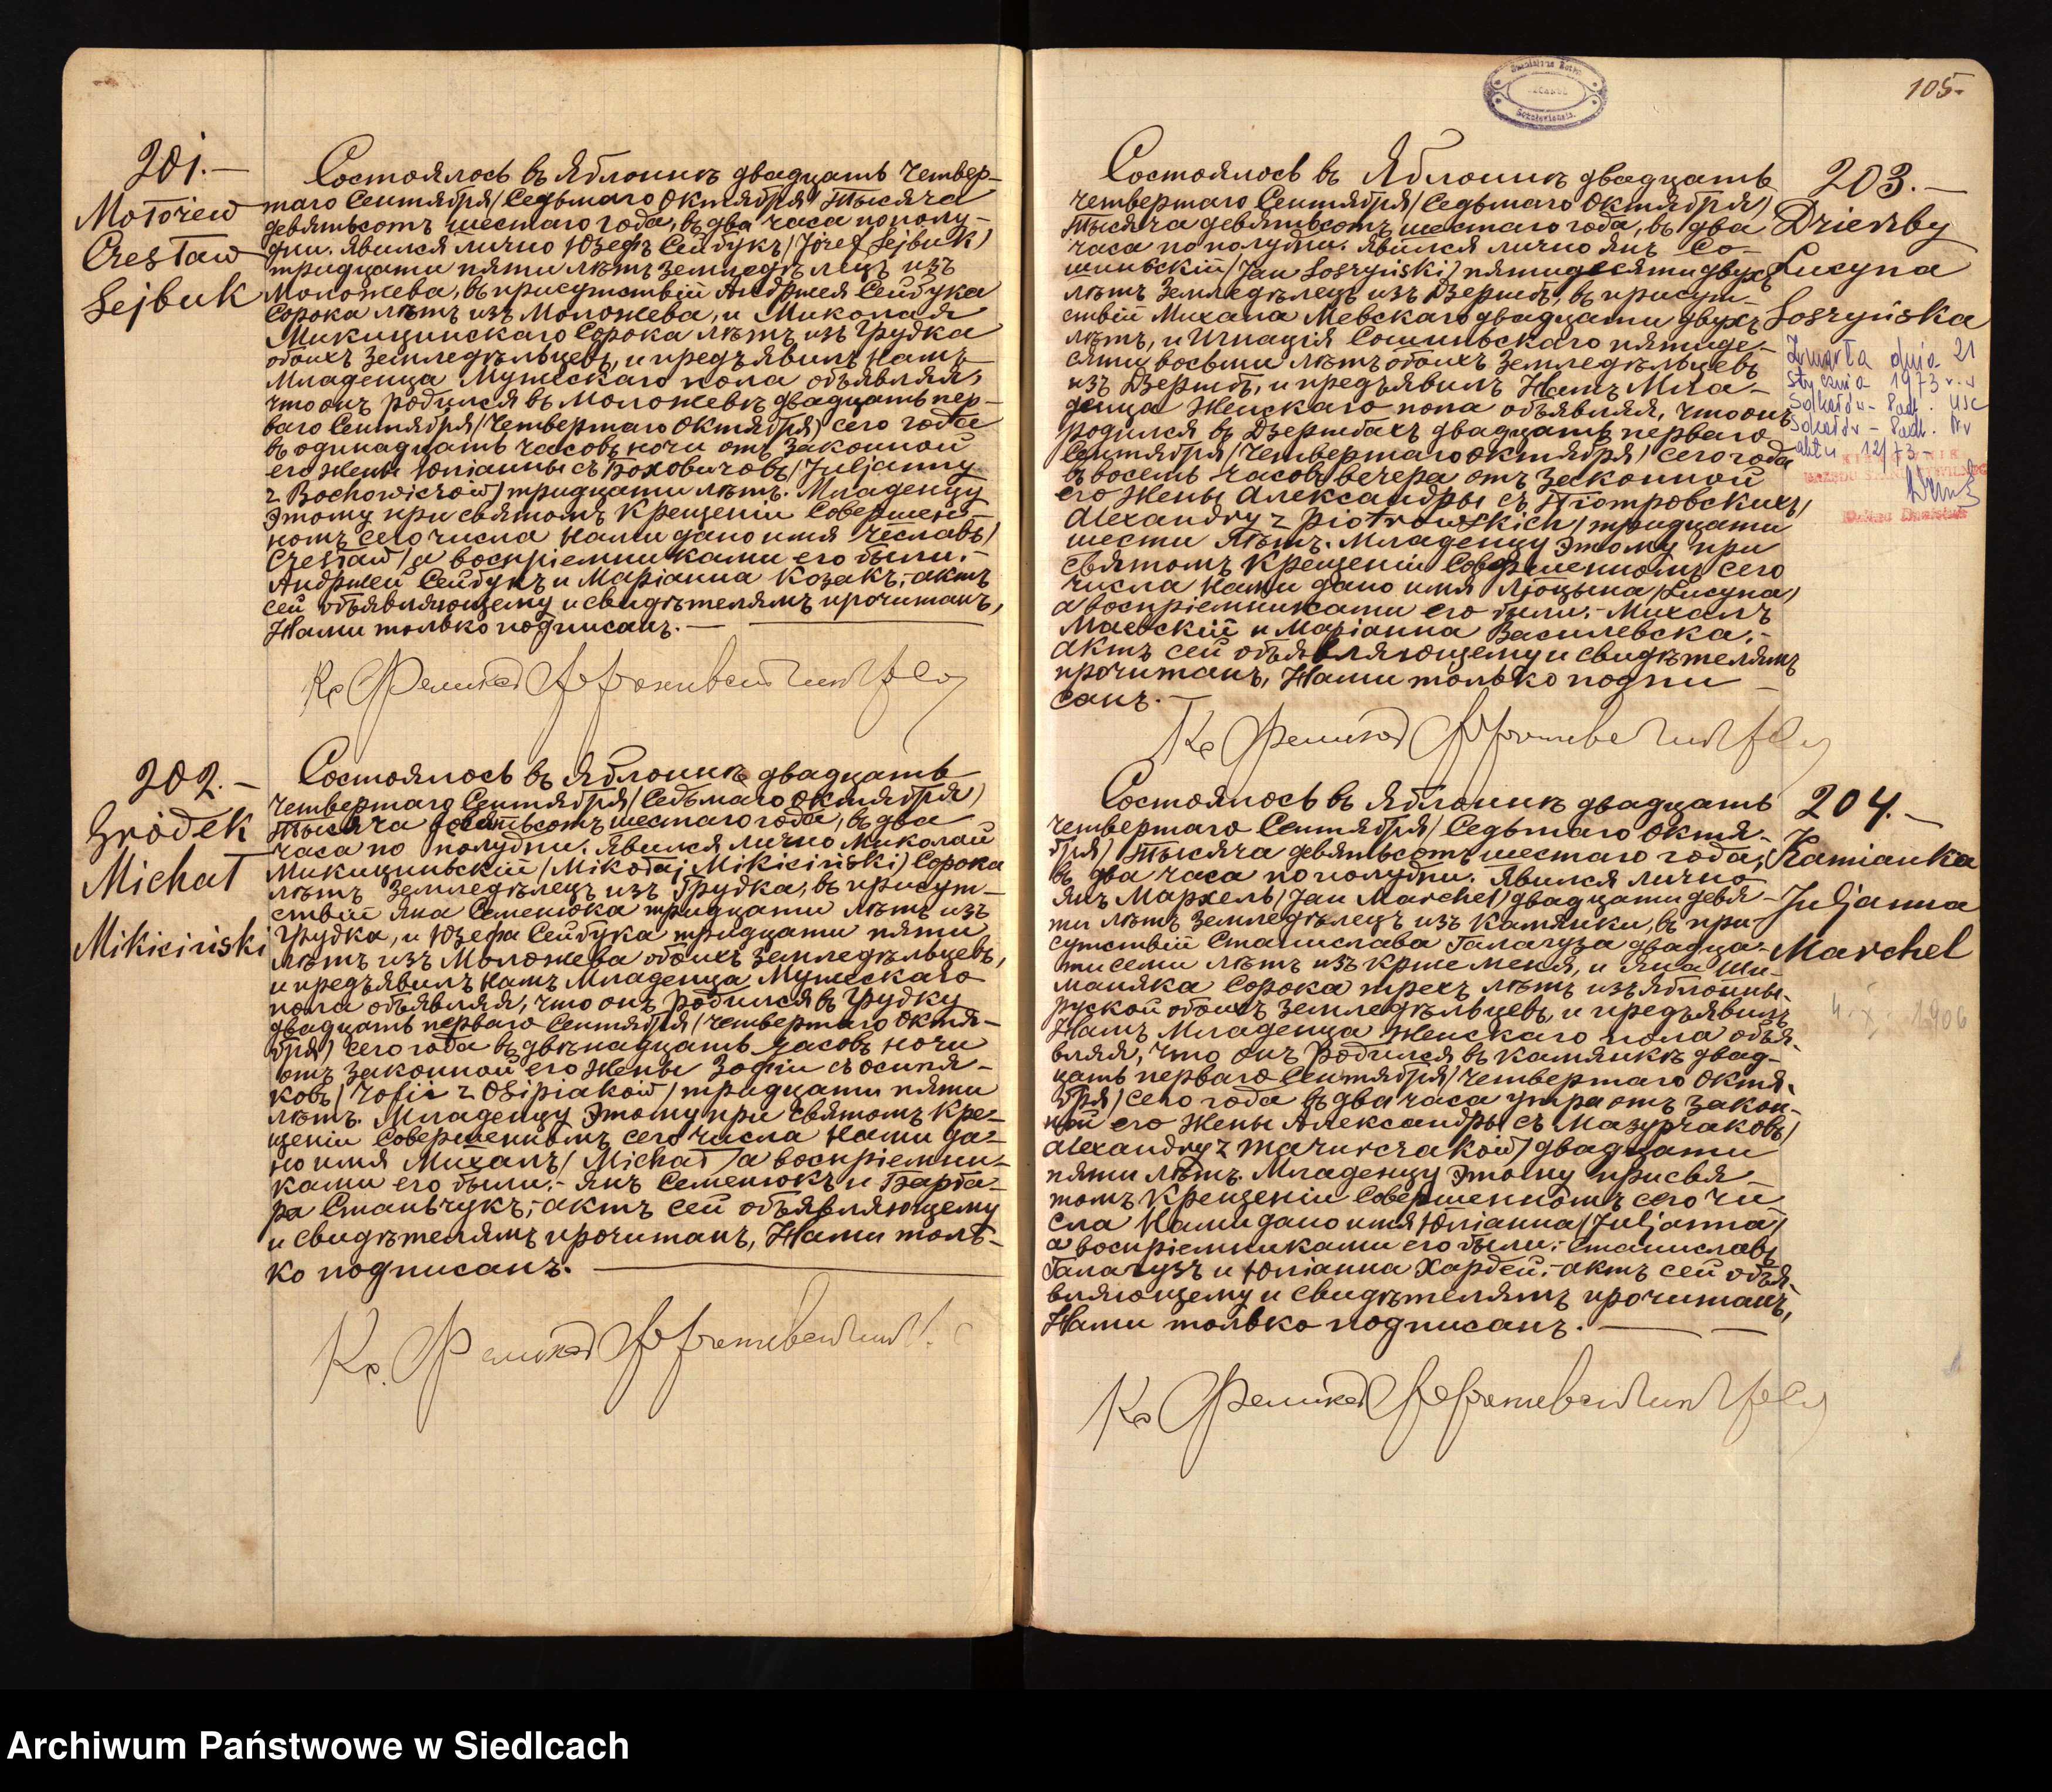 201.—
Mołożew
Czesław
Sejbuk
Состоялось въ Яблоннѣ двадцать четвер-
таго Сентября /Седьмаго Октября/ Тысяча
девятьсотъ шестаго года, въ два часа пополу-
дни. Явился лично Юзефъ Сейбукъ /Józef Sejbuk/
тридцати пяти лѣтъ земледѣлецъ изъ
Моложева, въ присутствіи Андржея Сейбука
Сорока лѣтъ изъ Моложева, и Миколая
Микицинскаго Сорока лѣтъ изъ Грудка
обоихъ земледѣльцевъ, и предъявилъ Намъ
Младенца Мужескаго пола объявляя,
что онъ родился въ Моложевѣ двадцать пер-
ваго Сентября /Четвертаго Октября/ сего года
въ одинадцать часовъ ночи отъ законной
его жены Юліанны съ Боховичовъ /Juljanny
z Bochowiczów/ тридцати лѣтъ. Младенцу
этому при святомъ крещеніи совершен-
номъ сего числа нами дано имя Чеславъ/
Czesław/ а воспріемниками его были:-
Андржей Сейбукъ и Маріанна Козакъ,- актъ
сей объявляющему и свидѣтелямъ прочитанъ,
Нами только подписанъ.—
Кс Феликсъ
202.—
Gródek
Michał
Mikiciński
Состоялось въ Яблоннѣ двадцать
четвертаго Сентября /Седьмаго Октября/
Тысяча девятьсотъ шестаго года, въ два
часа по полудни. Явился лично Миколай
Микициньскій /Mikołaj Mikiciński/ Сорока
лѣтъ земледѣлецъ изъ Грудка, въ присут-
ствіи Яна Семенюка тридцати лѣтъ изъ
Грудка, и Юзефа Сейбука тридцати пяти
лѣтъ изъ Моложева обоихъ земледѣльцевъ,
и предъявилъ Намъ Младенца Мужескаго
пола объявляя, что онъ родился въ Грудку
двадцать перваго Сентября /Четвертаго Октя-
бря/ сего года въ двѣнадцать часовъ ночи
отъ законной его жены Зофіи съ Осипя-
ковъ /Zofii z Osipiaków/ тридцати пяти
лѣтъ. Младенцу этому при святомъ кре-
щеніи совершенномъ сего числа нами да-
но имя Михалъ /Michał/ а воспріемни-
ками его были:- Янъ Семенюкъ и Барба-
ра Станьчукъ,- актъ сей объявляющему
и свидѣтелямъ прочитанъ, Нами толь-
ко подписанъ.
Кс. Феликсъ
105.
Состоялось въ Яблоннѣ двадцать
четвертаго Сентября /Седьмаго Октября/
Тысяча девятьсотъ шестаго года, въ два
часа по полудни. Явился лично Янъ Со-
шиньскій /Jan Soszyński/ пятидесяти двухъ
лѣтъ земледѣлецъ изъ Дзержбъ, въ присут-
ствіи Михала Мевскаго двадцати двухъ
лѣтъ, и Игнація Сошиньскаго пятиде-
сяти восьми лѣтъ обоихъ земледѣльцевъ
изъ Дзержбъ, и предъявилъ Намъ Мла-
денца Женскаго пола объявляя, что онъ
родился въ Дзержбахъ двадцать перваго
Сентября /Четвертаго Октября/ сего года
въ восемь часовъ вечера отъ законной
его жены Александры съ Піотровскихъ/
Alexandry z Piotrowskich/ тридцати
шести лѣтъ. Младенцу этому при
святомъ крещеніи совершенномъ сего
числа нами дано имя Люцына /Lucyna/
а воспріемниками его были:- Михалъ
Маевскій и Маріанна Василевска,-
актъ сей объявляющему и свидѣтелямъ
прочитанъ, Нами только подпи
санъ.—
Кс Феликсъ
203.—
Dzierzby
Lucyna
Soszyńska
Zmarła dnia 21
stycznia 1973 r. w
Sokołów-Podl. USC
Sokołów-Podl. Nr
aktu 12/73
Состоялось въ Яблоннѣ двадцать
четвертаго Сентября /Седьмаго Октя-
бря/ Тысяча девятьсотъ шестаго года,
въ два часа пополудни. Явился лично
Янъ Мархель /Jan Marchel/ двадцати девя-
ти лѣтъ земледѣлецъ изъ Камянки, въ при-
сутствіи Станислава Галагуза двадца-
ти семи лѣтъ изъ Кржеменя, и Яна Ши-
маняка Сорока трехъ лѣтъ изъ Яблонны-
руской обоихъ земледѣльцевъ, и предъявилъ
Намъ Младенца Женскаго пола объя-
вляя, что онъ родился въ Камянкѣ двад-
цать перваго Сентября /Четвертаго Октя-
бря/ сего года въ два часа утра отъ закон-
ной его жены Александры съ Мазурчаковъ/
Alexandry z Mazurczaków/ двадцати
пяти лѣтъ. Младенцу этому при свя-
томъ крещеніи совершенномъ сего чи-
сла Нами дано имя Юліанна /Juljanna/
а воспріемниками его были:- Станиславъ
Галагузъ и Юліанна Хардей,- актъ сей объя-
вляющему и свидѣтелямъ прочитанъ,
Нами только подписанъ.—
Кс Феликсъ
204.—
Kamianka
Juljanna
Marchel
4. X. 1906
Archiwum Państwowe w Siedlcach